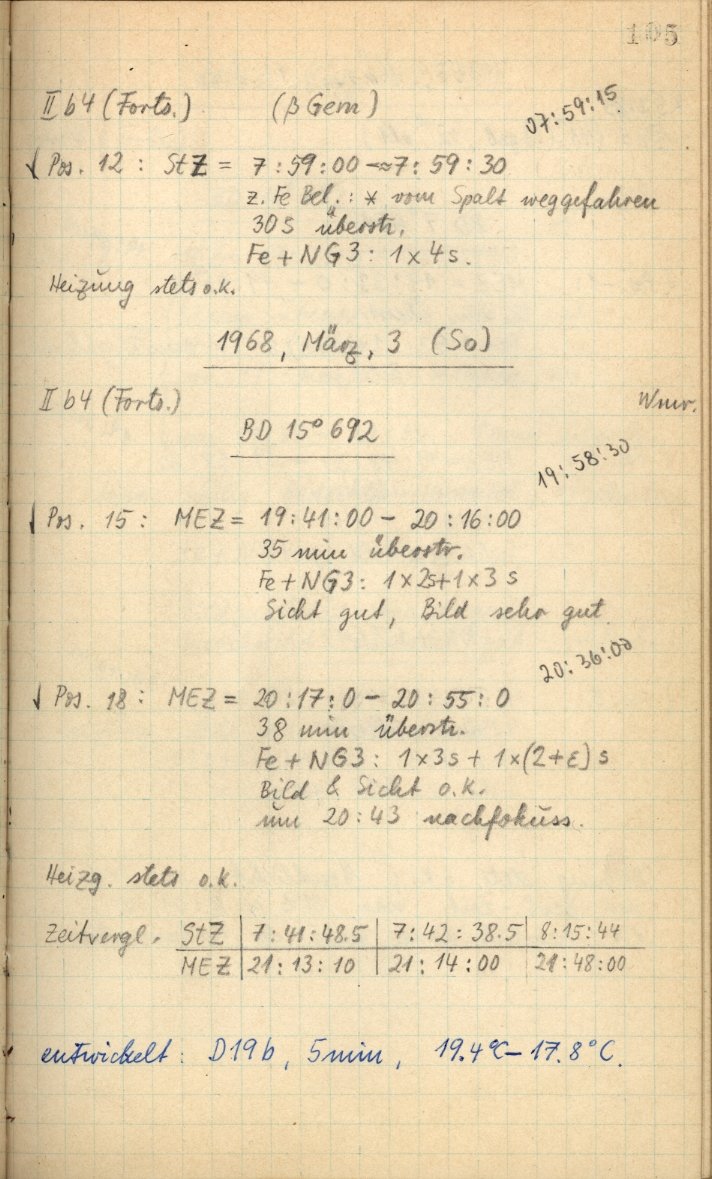 105
II b4 (Forts.) (β Gem) 07:59:15
√ Pos. 12 : StZ = 7:59:00 - ≈7:59:30
z. Fe Bel.: * vom Spalt weggefahren
30s überstr.
Fe + NG3: 1 x 4s.
Heizung stets o.k.
1968, März, 3 (So)
II b4 (Forts.) Wmr.
BD 15° 692
19:58:30
√ Pos. 15 : MEZ = 19:41:00 - 20:16:00
35 min überstr.
Fe + NG3: 1 x 2s + 1 x 3 s
Sicht gut, Bild sehr gut.
20:36:00
√ Pos. 18 : MEZ = 20:17:0 - 20:55:0
38 min überstr.
Fe + NG3: 1 x 3s + 1 x (2+ε) s
Bild & Sicht o.k.
um 20:43 nachfokuss.
Heizg. stets o.k.
Zeitvergl. StZ 7:41:48.5 7:42:38.5 8:15:44
MEZ 21:13:10 21:14:00 21:48:00
entwickelt: D19b, 5min, 19.4°C - 17.8°C.